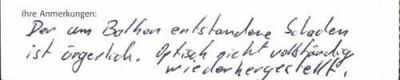 Ihre Anmerkungen:
Der am Balkon entstandene Schaden
ist ärgerlich. Optisch nicht vollständig
wiederhergestellt.